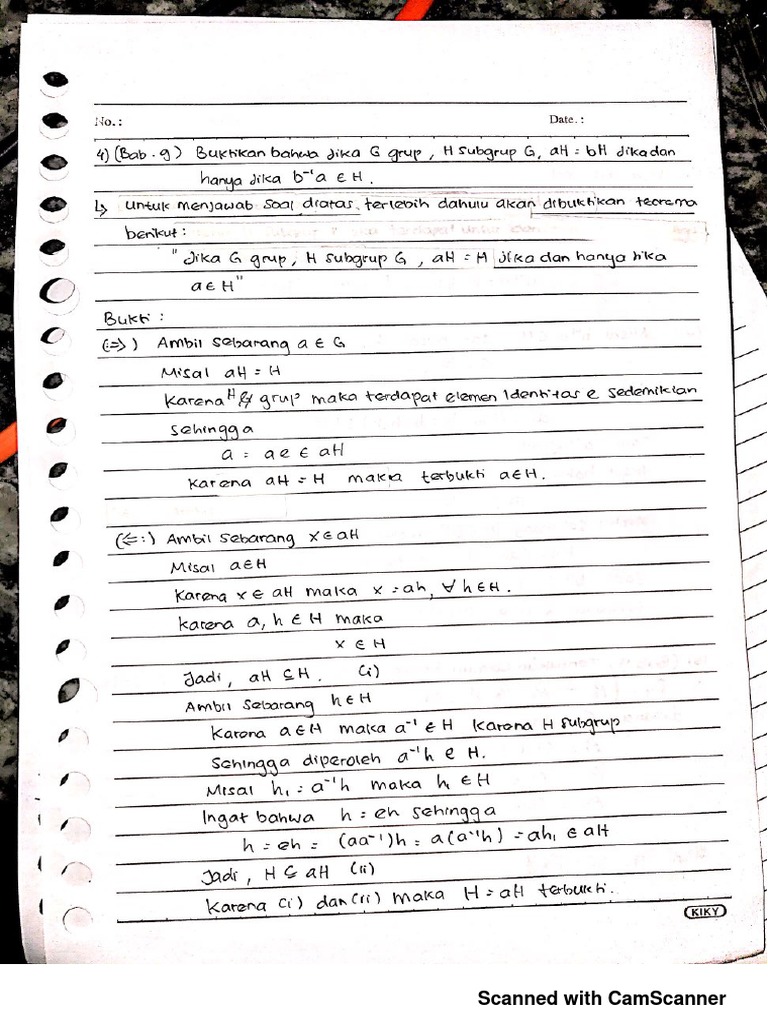 No. :
Date. :
4) (Bab. 9) Buktikan bahwa jika G grup, H subgrup G, aH = bH jika dan
hanya jika b⁻¹a ∈ H.
↳ untuk menjawab soal diatas, terlebih dahulu akan dibuktikan teorema
berikut :
"Jika G grup, H subgrup G, aH = H jika dan hanya jika
a ∈ H"
Bukti :
(:⇒) Ambil sebarang a ∈ G
Misal aH = H
Karena H grup maka terdapat elemen Identitas e sedemikian
sehingga
a = ae ∈ aH
Karena aH = H maka terbukti a∈H.
(⇐:) Ambil sebarang x ∈ aH
Misal a∈H
Karena x ∈ aH maka x = ah, ∀ h∈H.
karena a, h ∈ H maka
x ∈ H
Jadi, aH ⊆ H. (i)
Ambil sebarang h∈H
Karena a∈H maka a⁻¹ ∈ H karena H subgrup
Sehingga diperoleh a⁻¹h ∈ H.
Misal h₁ = a⁻¹h maka h₁ ∈ H
Ingat bahwa h = eh sehingga
h = eh = (aa⁻¹)h = a(a⁻¹h) = ah₁ ∈ aH
Jadi, H ⊆ aH (ii)
Karena (i) dan (ii) maka H = aH terbukti.
KIKY
Scanned with CamScanner